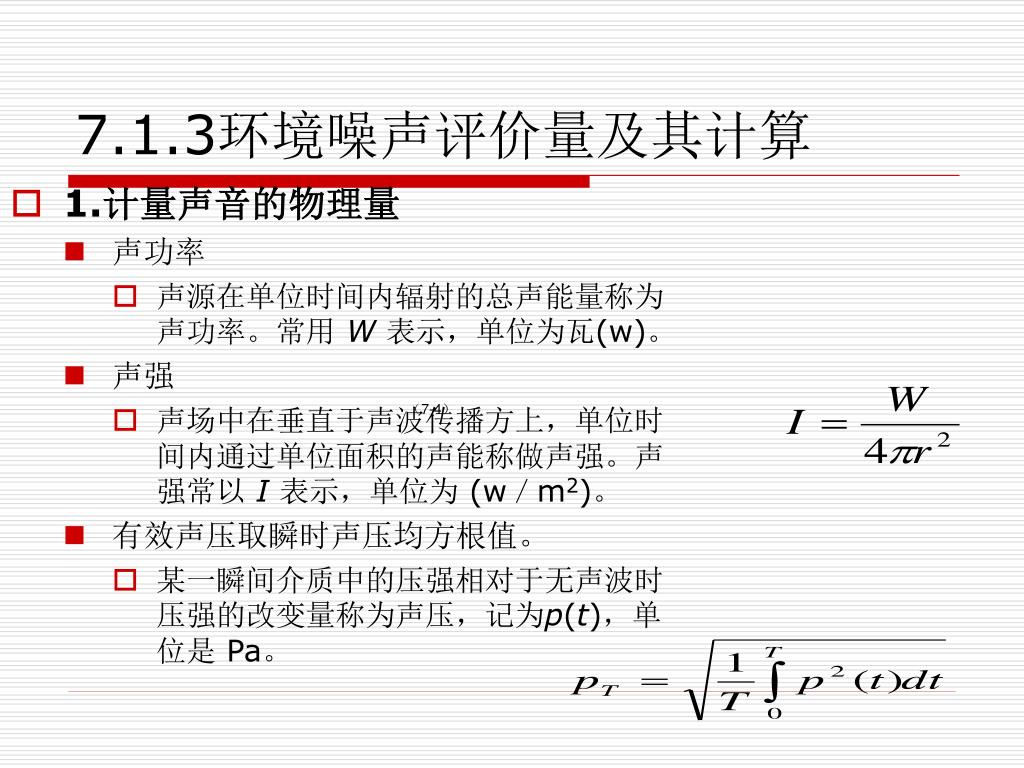 7.1.3环境噪声评价量及其计算
1.计量声音的物理量
声功率
声源在单位时间内辐射的总声能量称为
声功率。常用 W 表示，单位为瓦(w)。
声强
声场中在垂直于声波传播方上，单位时
间内通过单位面积的声能称做声强。声
强常以 I 表示，单位为 (w／m²)。
(7-4)
I = W / 4πr²
有效声压取瞬时声压均方根值。
某一瞬间介质中的压强相对于无声波时
压强的改变量称为声压，记为p(t)，单
位是 Pa。
p_T = √(1/T ∫₀ᵀ p²(t)dt)